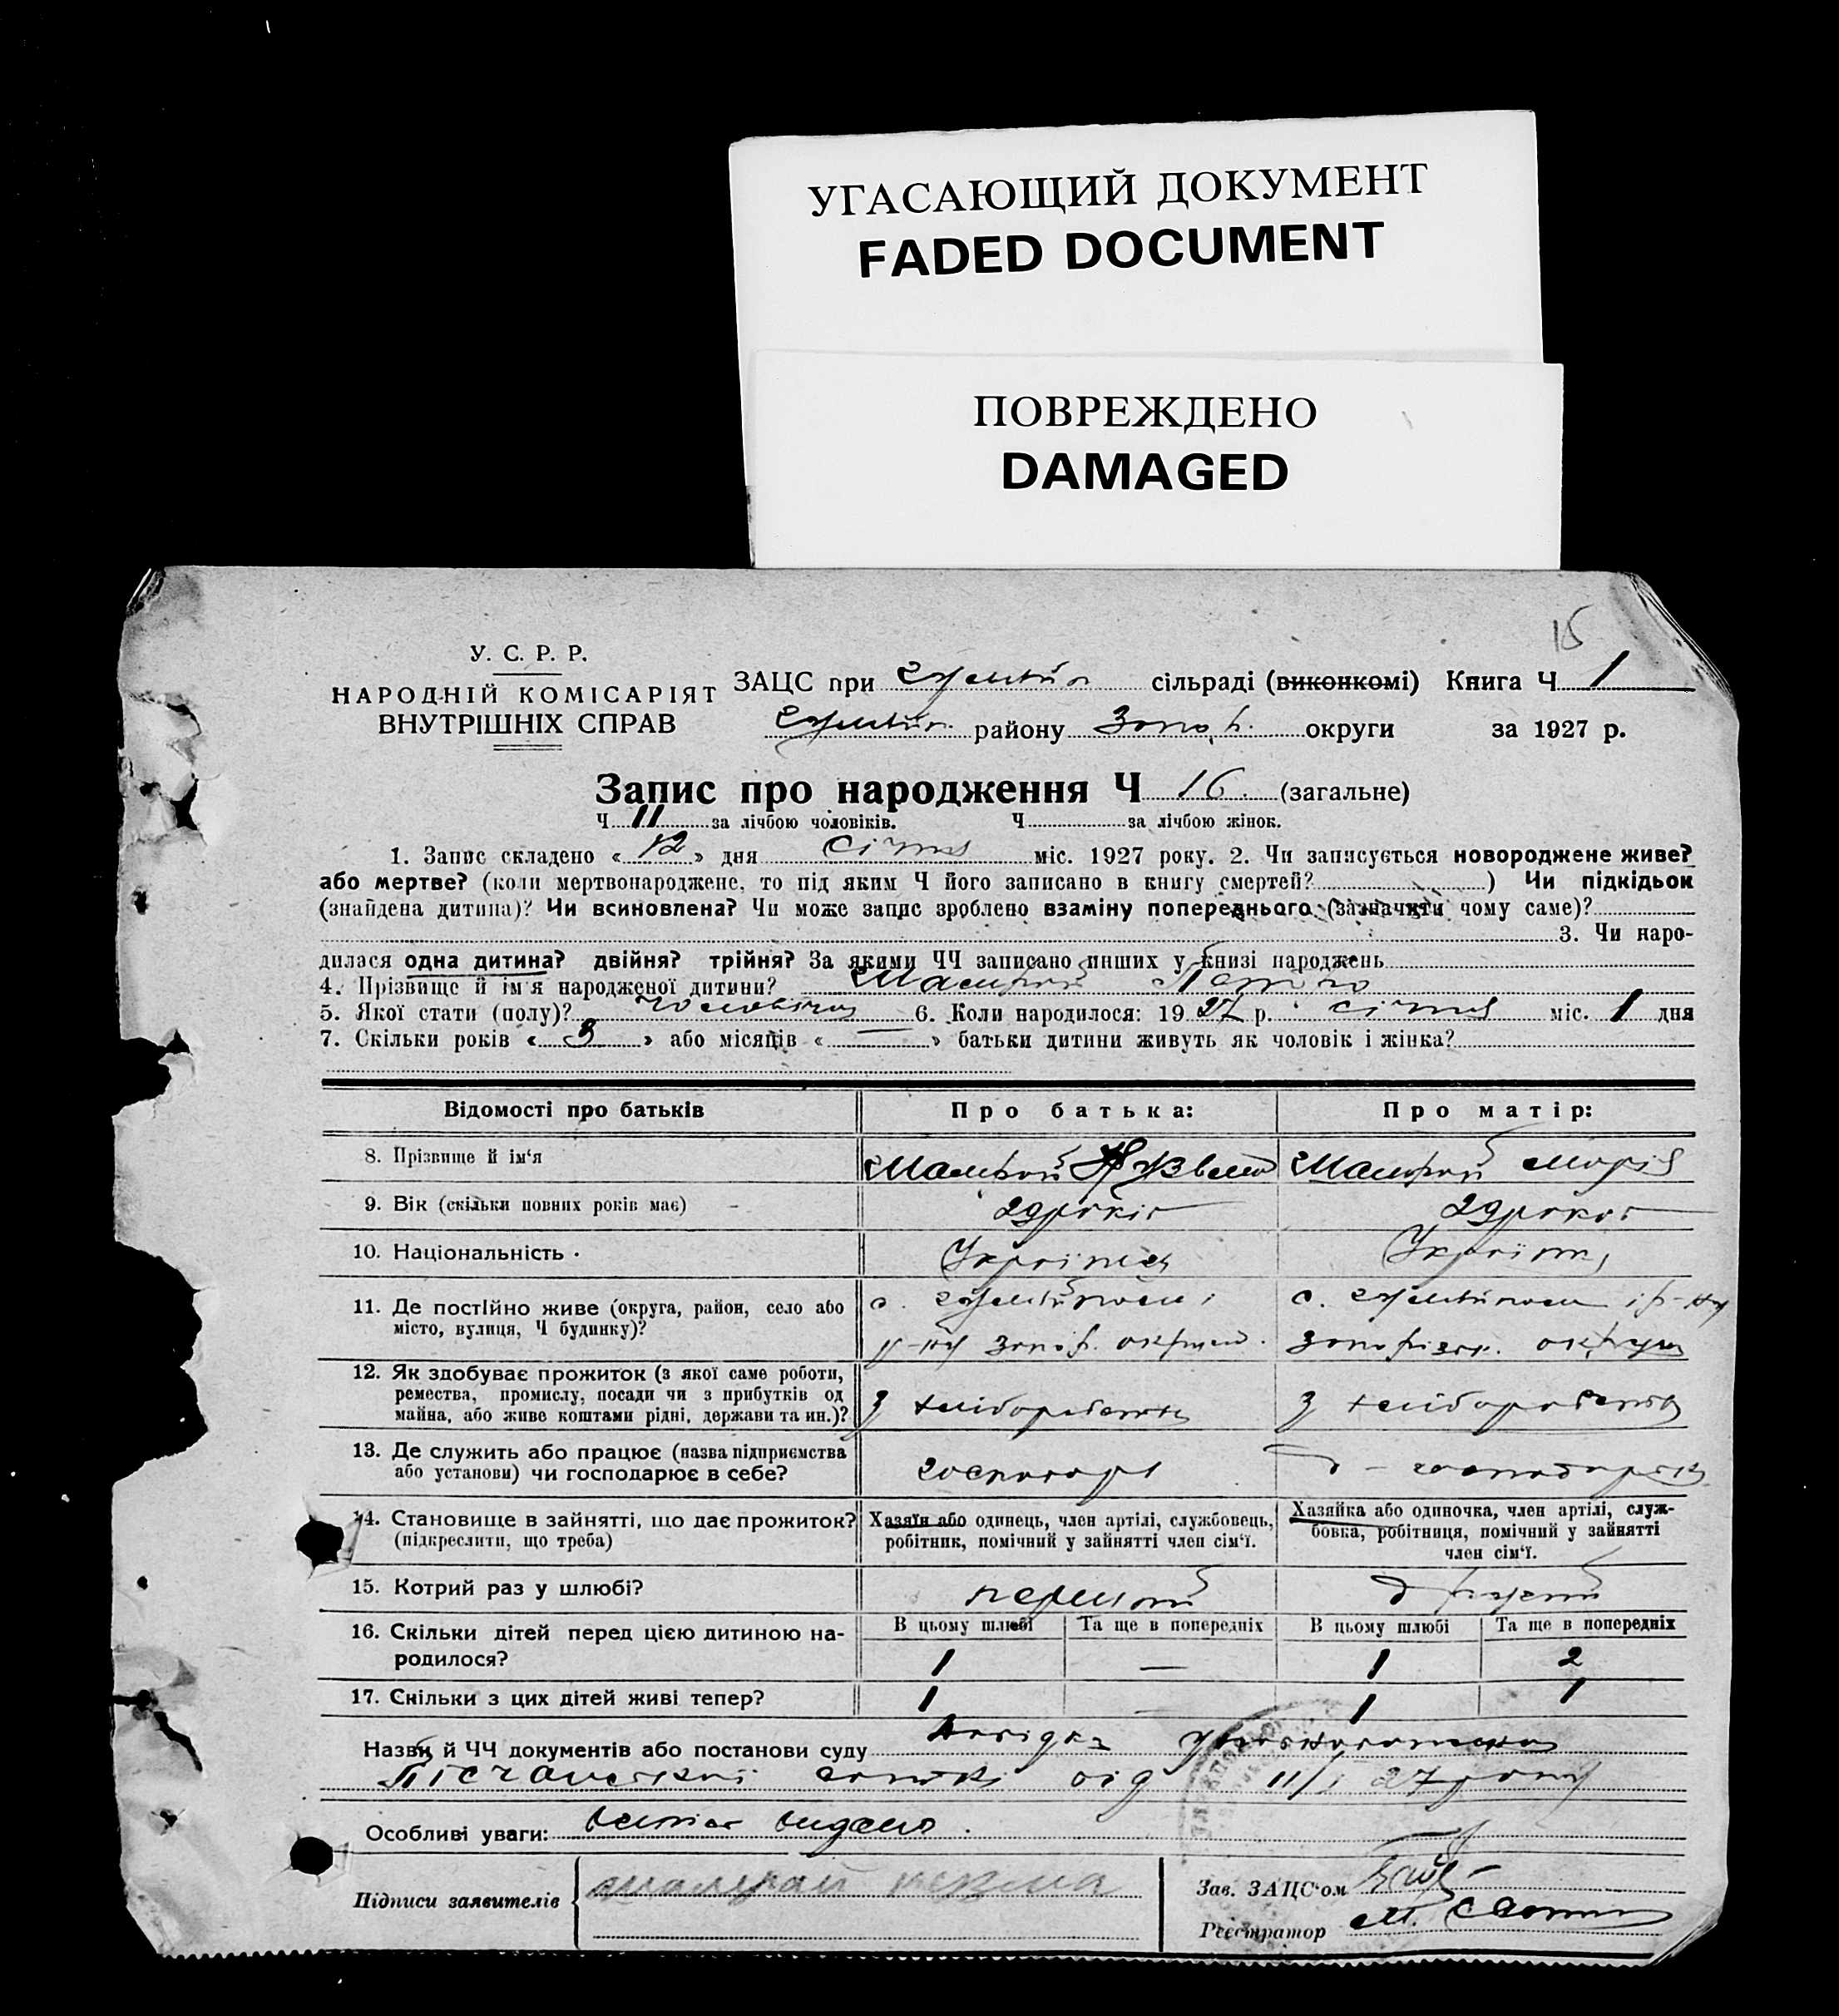 УГАСАЮЩИЙ ДОКУМЕНТ
FADED DOCUMENT
ПОВРЕЖДЕНО
DAMAGED
15
У. С. Р. Р.
НАРОДНІЙ КОМІСАРІЯТ
ВНУТРІШНІХ СПРАВ
ЗАЦС при сільраді (виконкомі) Книга Ч 1
району округи за 1927 р.
Запис про народження Ч 16 (загальне)
Ч 11 за лічбою чоловіків. Ч за лічбою жінок.
1. Запис складено « 12 » дня січня міс. 1927 року. 2. Чи записується новороджене живе?
або мертве? (коли мертвонароджене, то під яким Ч його записано в книгу смертей? ) Чи підкідьок
(знайдена дитина)? Чи всиновлена? Чи може запис зроблено взаміну попереднього (зазначити чому саме)?
3. Чи наро-
дилася одна дитина? двійня? трійня? За якими ЧЧ записано инших у книзі народжень
4. Прізвище й ім'я народженої дитини? Петро
5. Якої стати (полу)? 6. Коли народилося: 19 27 р. січня міс. 1 дня
7. Скільки років « 3 » або місяців « — » батьки дитини живуть як чоловік і жінка?
Відомості про батьків Про батька: Про матір:
8. Прізвище й ім'я Марія
9. Вік (скільки повних років має) 29 років 29 років
10. Національність Українец Українка
11. Де постійно живе (округа, район, село або
місто, вулиця, Ч будинку)?
с. с.
округи округи
12. Як здобуває прожиток (з якої саме роботи,
ремества, промислу, посади чи з прибутків од
майна, або живе коштами рідні, держави та ин.)?
з хліборобства з хліборобства
13. Де служить або працює (назва підприємства
або установи) чи господарює в себе?
господарь
14. Становище в зайнятті, що дає прожиток?
(підкреслити, що треба)
Хазяїн або одинець, член артілі, службовець,
робітник, помічний у зайнятті член сім'ї.
Хазяйка або одиночка, член артілі, служ-
бовка, робітниця, помічний у зайнятті
член сім'ї.
15. Котрий раз у шлюбі? перший другий
16. Скільки дітей перед цією дитиною на-
родилося?
В цьому шлюбі Та ще в попередніх В цьому шлюбі Та ще в попередніх
1 — 1 2
17. Скільки з цих дітей живі тепер? 1 1 1
Назви й ЧЧ документів або постанови суду
від 11/I 27 року
Особливі уваги: видано.
Підписи заявителів
Зав. ЗАЦС'ом
Реєстратор